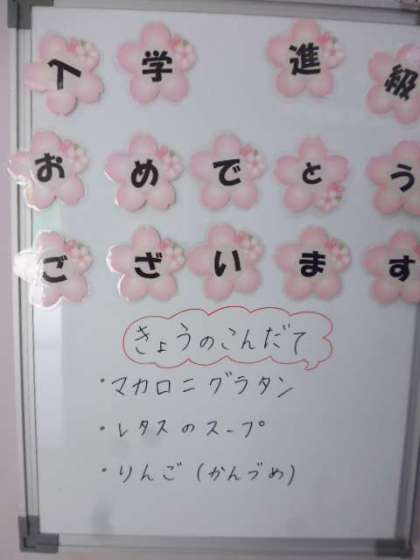 入学 進級
おめでとう
ございます
きょうのこんだて
・マカロニグラタン
・レタスのスープ
・りんご(かんづめ)